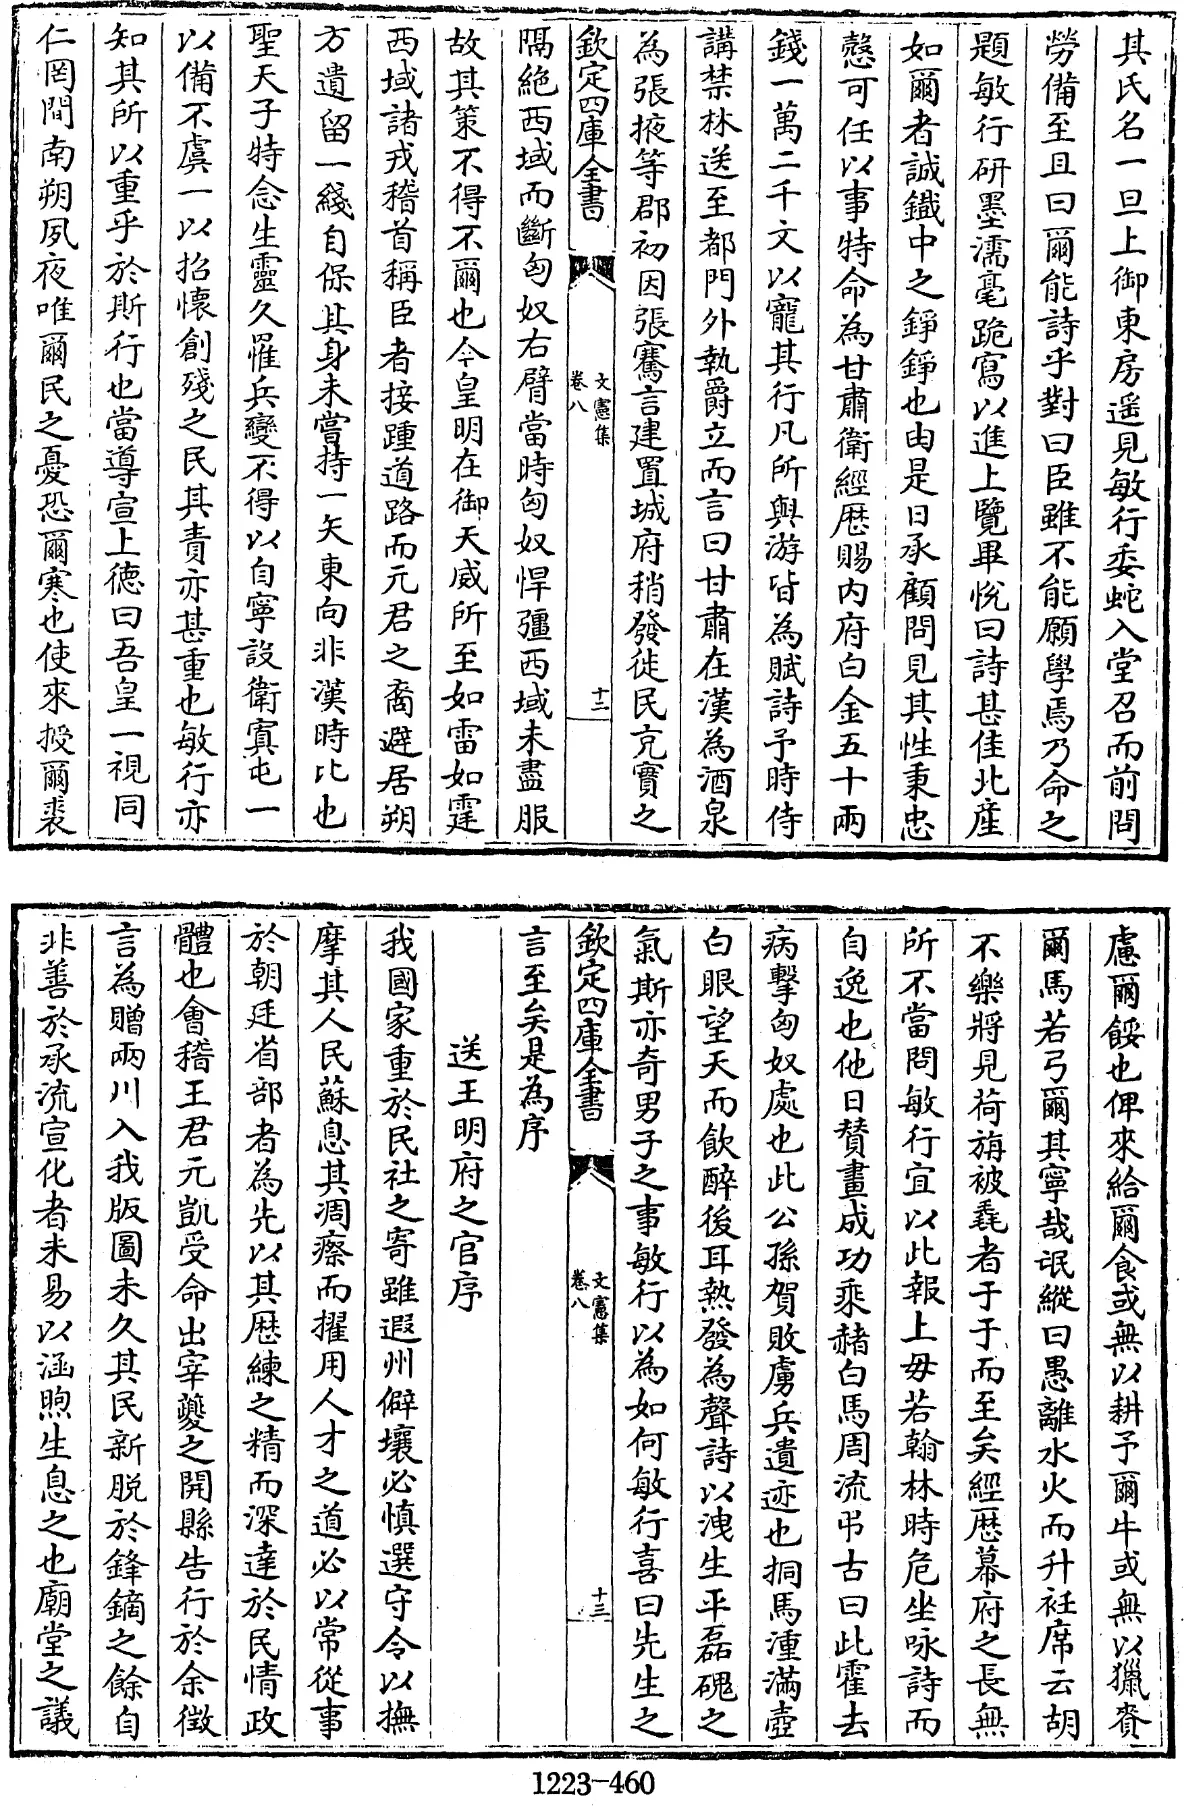 其氏名一旦上御東房遥見敏行委蛇入堂召而前問
勞備至且曰爾能詩乎對曰臣雖不能願學焉乃命之
題敏行研墨濡毫跪寫以進上覽畢悅曰詩甚佳北産
如爾者誠鐵中之錚錚也由是日承顧問見其性秉忠
慤可任以事特命為甘肅衛經歴賜内府白金五十兩
錢一萬二千文以寵其行凡所與游皆為賦詩予時侍
講禁林送至都門外執爵立而言曰甘肅在漢為酒泉
為張掖等郡初因張騫言建置城府稍發徙民充實之
欽定四庫全書
文憲集
卷八
十二
隔絶西域而斷匈奴右臂當時匈奴悍彊西域未盡服
故其策不得不爾也今皇明在御天威所至如雷如霆
西域諸戎稽首稱臣者接踵道路而元君之裔避居朔
方遺留一綫自保其身未嘗持一矢東向非漢時比也
聖天子特念生靈久罹兵變不得以自寧設衛寘屯一
以備不虞一以招懷創殘之民其責亦甚重也敏行亦
知其所以重乎於斯行也當導宣上徳曰吾皇一視同
仁罔間南朔夙夜唯爾民之憂恐爾寒也使來授爾裘
慮爾餒也俾來給爾食或無以耕予爾牛或無以獵賚
爾馬若弓爾其寧哉氓縱曰愚離水火而升袵席云胡
不樂將見荷旃被毳者于于而至矣經歴幕府之長無
所不當問敏行宜以此報上毋若翰林時危坐咏詩而
自逸也他日贊畫成功乘赭白馬周流弔古曰此霍去
病擊匈奴處也此公孫賀敗虜兵遺迹也挏馬湩滿壺
白眼望天而飲醉後耳熱發為聲詩以洩生平磊磈之
氣斯亦奇男子之事敏行以為如何敏行喜曰先生之
欽定四庫全書
文憲集
卷八
十三
言至矣是為序
送王明府之官序
我國家重於民社之寄雖遐州僻壤必慎選守令以撫
摩其人民蘇息其凋瘵而擢用人才之道必以常從事
於朝廷省部者為先以其歴練之精而深達於民情政
體也會稽王君元凱受命出宰夔之開縣告行於余徴
言為贈兩川入我版圖未久其民新脱於鋒鏑之餘自
非善於承流宣化者未易以涵煦生息之也廟堂之議
1223-460